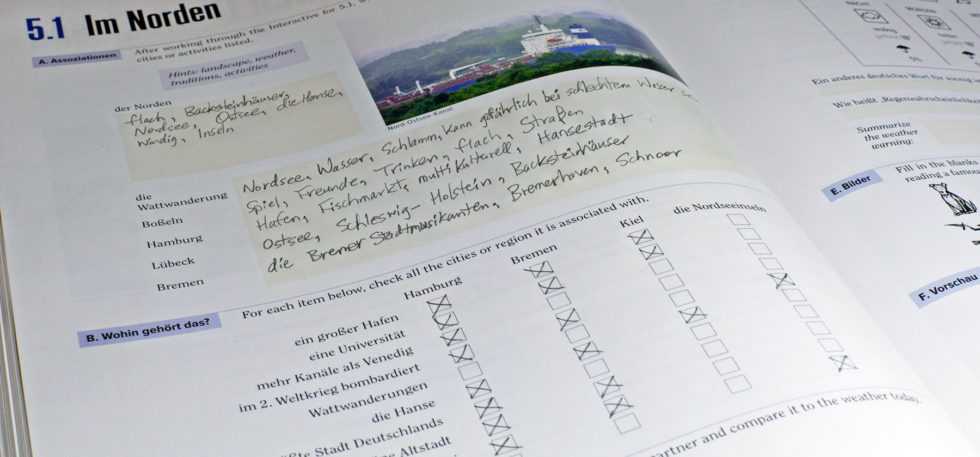 5.1 Im Norden
A. Assoziationen
After working through the Interactive for 5.1,
cities or activities listed.
Hints: landscape, weather,
traditions, activities
der Norden
flach, Backsteinhäuser,
Nordsee, Ostsee, die Hanse,
Windig, Inseln
Nord-Ostsee-Kanal
die
Wattwanderung
Nordsee, Wasser, Schlamm, Kann gefährlich bei schlechtem
Boßeln
Spiel, Freunde, Trinken, flach, Straßen
Hamburg
Hafen, Fischmarkt, multikulturell, Hansestadt
Lübeck
Ostsee, Schleswig-Holstein, Backsteinhäuser
Bremen
die Bremer Stadtmusikanten, Bremerhaven, Schnoor
B. Wohin gehört das?
For each item below, check all the cities or region it is associated with.
Hamburg Bremen Kiel die Nordseeinseln
ein großer Hafen
eine Universität
mehr Kanäle als Venedig
im 2. Weltkrieg bombardiert
Wattwanderungen
die Hanse
Stadt Deutschlands
Altstadt
partner and compare it to the weather today.
Ein anderes deutsches Wort für
Wie heißt
Summarize
the weather
warning:
E. Bilder
Fill in the blanks
reading a famous
F. Vorschau